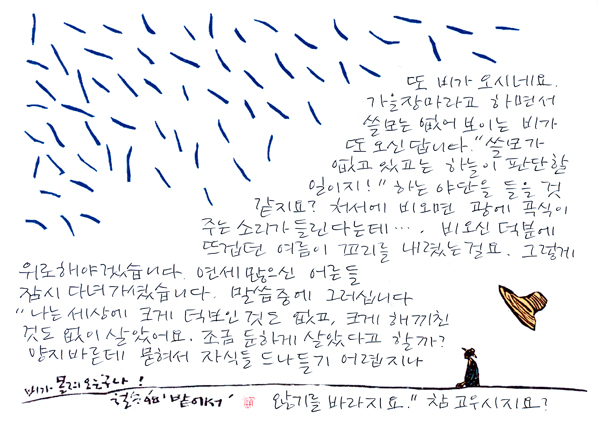 또 비가 오시네요.
가을장마라고 하면서
쓸모는 없어 보이는 비가
또 오신답니다. "쓸모가
없고 있고는 하늘이 판단할
일이지!" 하는 야단을 들을 것
같지요? 처서에 비오면 광에 곡식이
주는 소리가 들린다는데…. 비오신 덕분에
뜨겁던 여름이 꼬리를 내렸는걸요. 그렇게
위로해야겠습니다. 연세많으신 어른들
잠시 다녀가셨습니다. 말씀중에 그러십니다
"나는 세상에 크게 덕보인 것도 없고, 크게 해끼친
것도 없이 살았어요. 조금 둔하게 살았다고 할까?
양지바른데 묻혀서 자식들 드나들기 어렵지나
않기를 바라지요." 참 고우시지요?
비가 몰려오는구나!
밭에서'